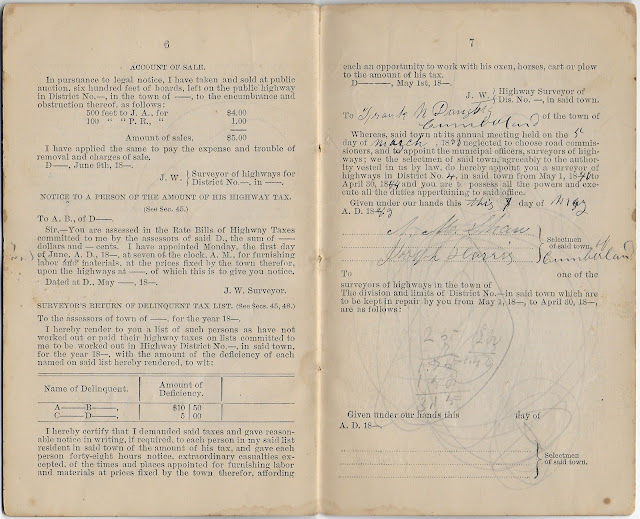 6
ACCOUNT OF SALE.
In pursuance to legal notice, I have taken and sold at public
auction, six hundred feet of boards, left on the public highway
in District No.—, in the town of ——, to the encumbrance and
obstruction thereof, as follows:
500 feet to J. A., for $4.00
100 " " P. R., " 1.00
Amount of sales, $5.00
I have applied the same to pay the expense and trouble of
removal and charges of sale.
D——. June 9th, 18—.
J. W. } Surveyor of highways for
District No.—, in ——.
NOTICE TO A PERSON OF THE AMOUNT OF HIS HIGHWAY TAX.
(See Sec. 45.)
To A. B., of D——.
Sir,—You are assessed in the Rate Bills of Highway Taxes
committed to me by the assessors of said D., the sum of ——
dollars and — cents. I have appointed Monday, the first day
of June, A. D., 18—, at seven of the clock, A. M., for furnishing
labor and materials, at the prices fixed by the town therefor,
upon the highways at ——, of which this is to give you notice.
Dated at D., May ——, 18—.
J. W. Surveyor.
SURVEYOR'S RETURN OF DELINQUENT TAX LIST. (See Secs. 45, 46.)
To the assessors of town of ——, for the year 18—.
I hereby render to you a list of such persons as have not
worked out or paid their highway taxes on lists committed to
me to be worked out in Highway District No.—, in said town,
for the year 18—, with the amount of the deficiency of each
named on said list hereby rendered, to wit:
Name of Delinquent. Amount of Deficiency.
A——B——, $10 50
C——D——, 5 00
I hereby certify that I demanded said taxes and gave reason-
able notice in writing, if required, to each person in my said list
resident in said town of the amount of his tax, and gave each
person forty-eight hours notice, extraordinary casualties ex-
cepted, of the times and places appointed for furnishing labor
and materials at prices fixed by the town therefor, affording
7
each an opportunity to work with his oxen, horses, cart or plow
to the amount of his tax.
D————, May 1st, 18—.
J. W. } Highway Surveyor of
Dis. No. —, in said town.
To Frank N of the town of
Cumberland
Whereas, said town at its annual meeting held on the
day of march, 18 neglected to choose road commis-
sioners, and to appoint the municipal officers, surveyors of high-
ways; we the selectmen of said town, agreeably to the author-
ity vested in us by law, do hereby appoint you a surveyor of
highways in District No. 4, in said town from May 1, 18 to
April 30, 18 and you are to possess all the powers and exe-
cute all the duties appertaining to said office.
Given under our hands this day of May
A. D. 18
Shaw
Joseph
} Selectmen
of said town, of
Cumberland
To one of the
surveyors of highways in the town of
The division and limits of District No.—in said town which are
to be kept in repair by you from May 1, 18—, to April 30, 18—,
are as follows:
Given under our hands this day of
A. D. 18—
} Selectmen
of said town.